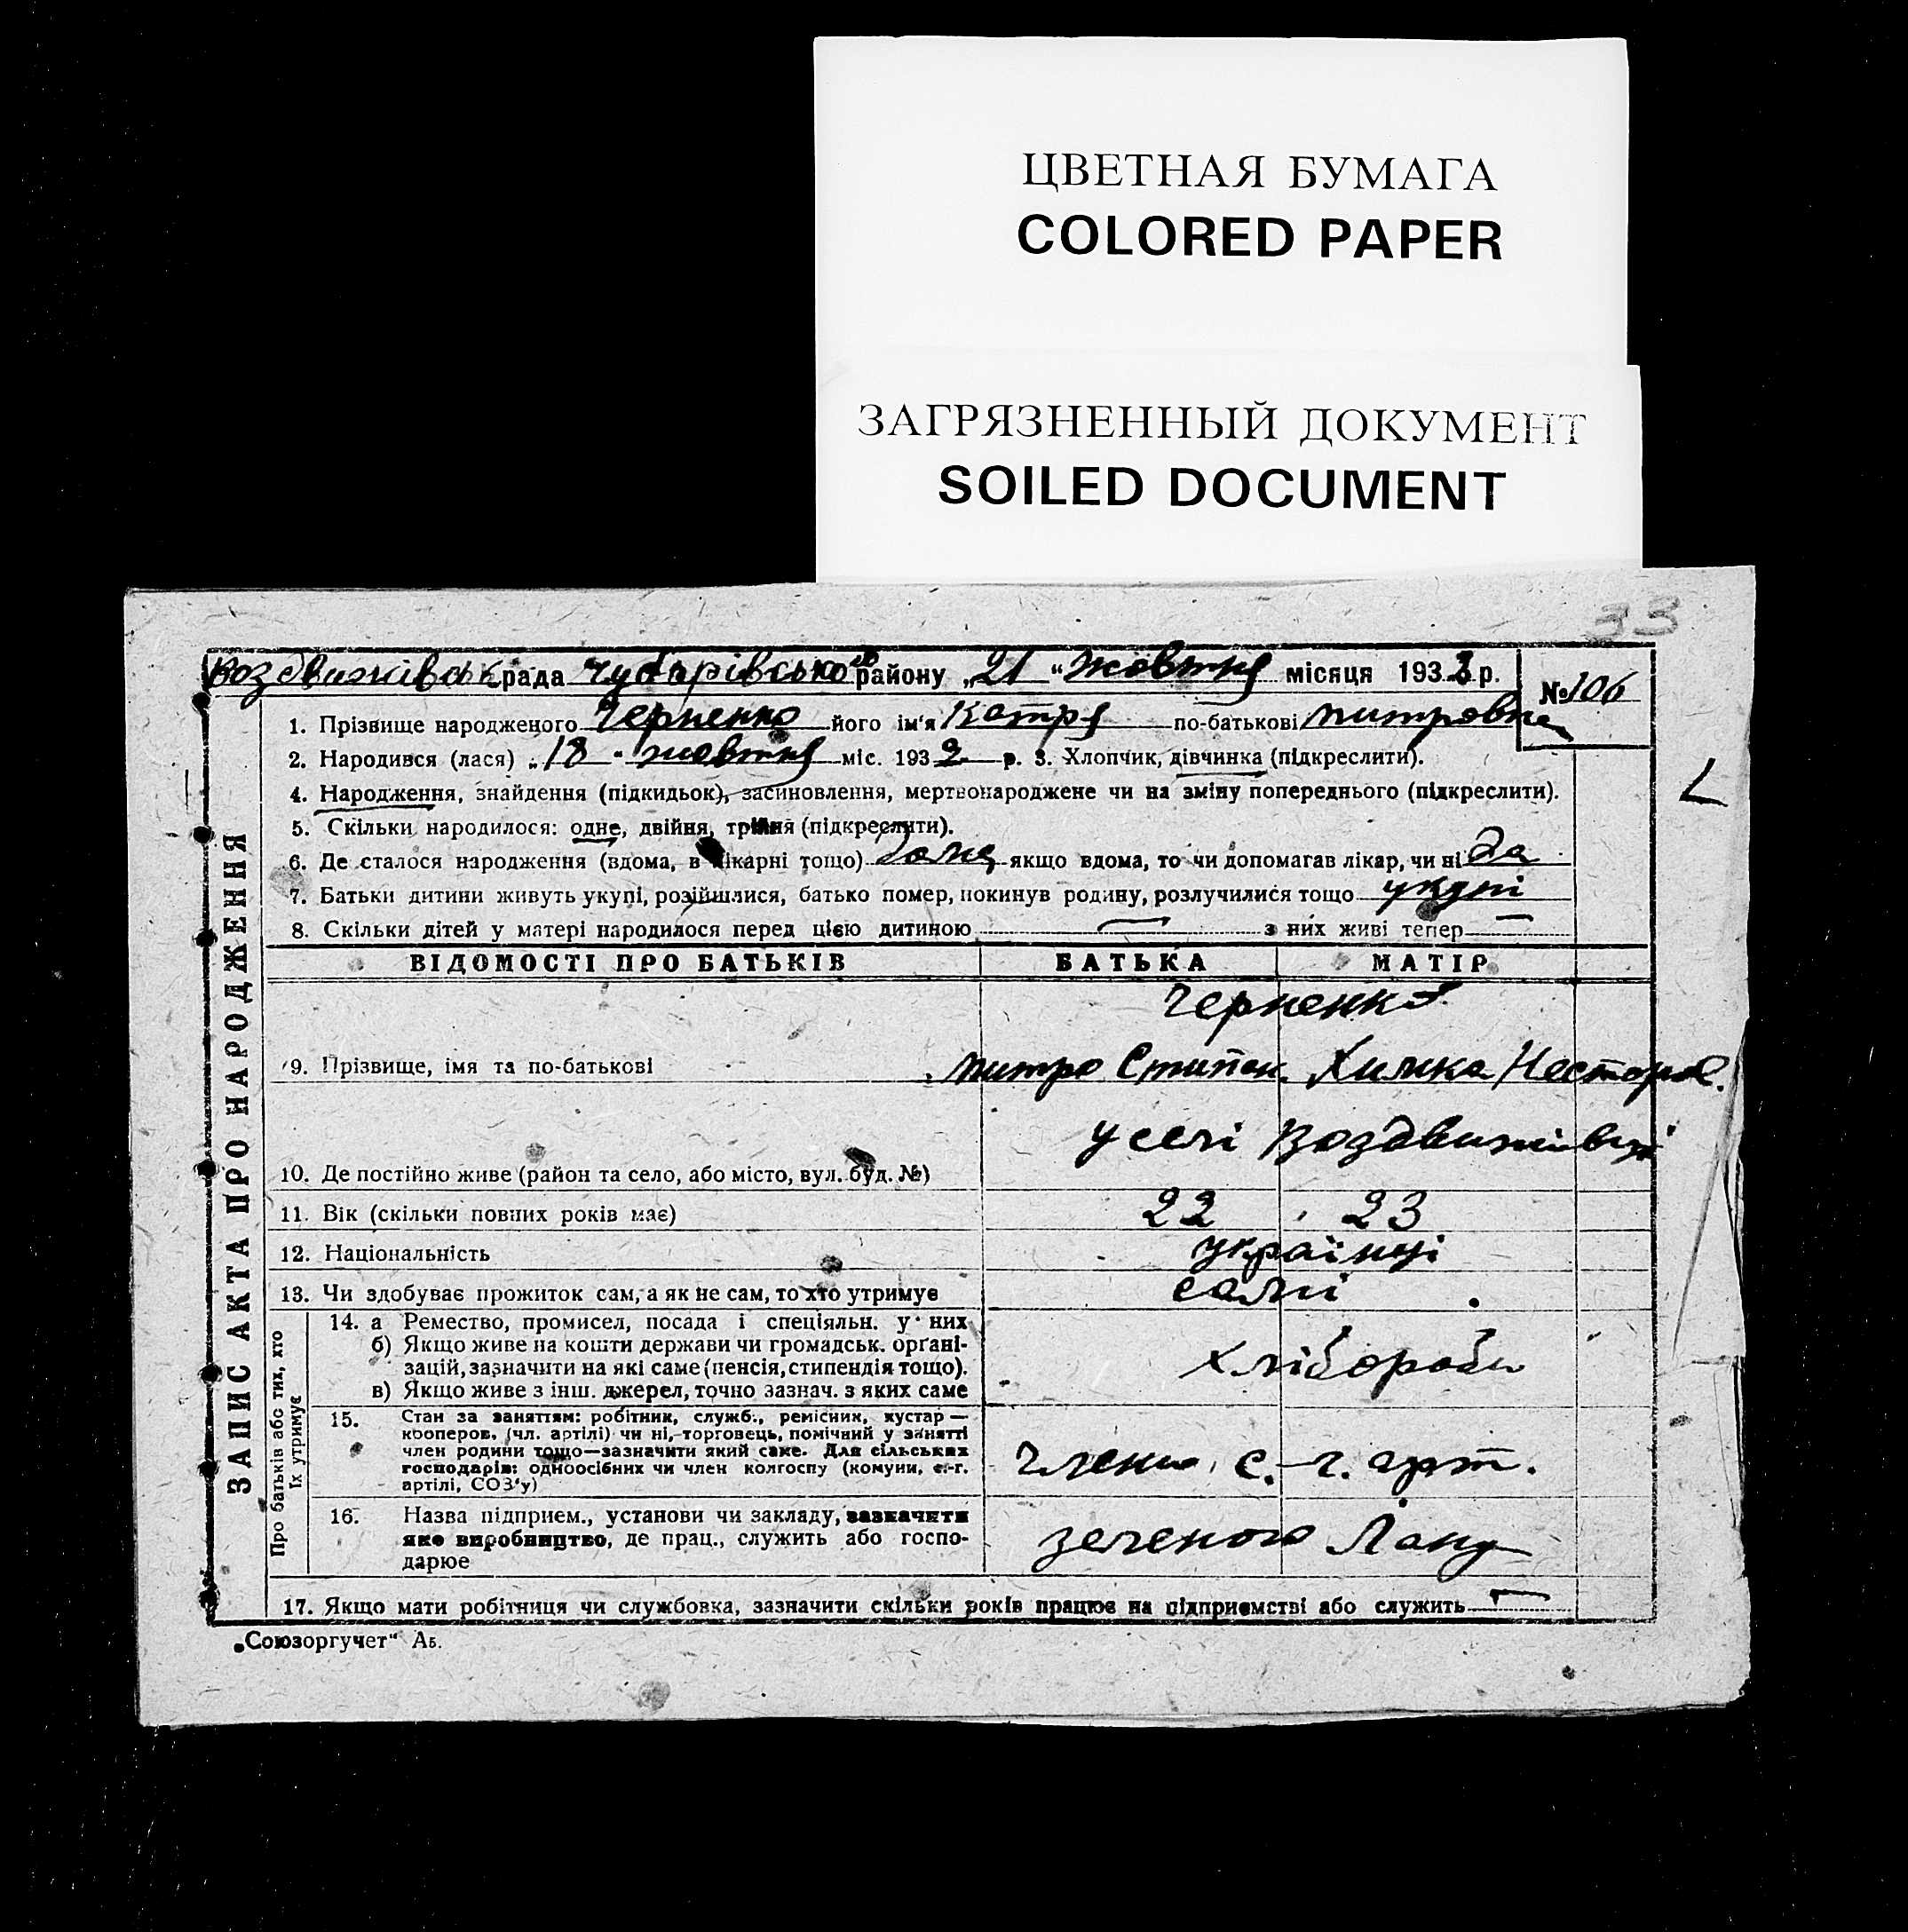 ЦВЕТНАЯ БУМАГА
COLORED PAPER
ЗАГРЯЗНЕННЫЙ ДОКУМЕНТ
SOILED DOCUMENT
33
Воздвижівськ рада Чубарівського району „21 “ Жовтня місяця 193 р.
№ 106
1. Прізвище народженого Черненко його ім'я Катря по-батькові
2. Народився (лася) „18 " жовтня міс. 193 р. 3. Хлопчик, дівчинка (підкреслити).
4. Народження, знайдення (підкидьок), засиновлення, мертвонароджене чи на зміну попереднього (підкреслити).
5. Скільки народилося: одне, двійня, трійня (підкреслити).
6. Де сталося народження (вдома, в лікарні тощо) дома якщо вдома, то чи допомагав лікар, чи ні да
7. Батьки дитини живуть укупі, розійшлися, батько помер, покинув родину, розлучилися тощо укупі
8. Скільки дітей у матері народилося перед цією дитиною — з них живі тепер —
ЗАПИС АКТА ПРО НАРОДЖЕННЯ
ВІДОМОСТІ ПРО БАТЬКІВ БАТЬКА МАТІР
Черненко
9. Прізвище, імя та по-батькові Митро Степан. Химка Нестаров.
у селі Воздвижівці
10. Де постійно живе (район та село, або місто, вул. буд. №)
11. Вік (скільки повних років має) 22 23
12. Національність українці
13. Чи здобуває прожиток сам, а як не сам, то хто утримує самі
Про батьків або тих, хто їх утримує
14. а Ремество, промисел, посада і спеціяльн. у них
б) Якщо живе на кошти держави чи громадськ. органі-
зацій, зазначити на які саме (пенсія, стипендія тощо).
в) Якщо живе з інш. джерел, точно зазнач. з яких саме
Хлібороби
15. Стан за заняттям: робітник, служб., ремісник, кустар —
кооперов. (чл. артілі) чи ні,-торговець, помічний у занятті
член родини тощо—зазначити який саме. Для сільських
господарів: одноосібних чи член колгоспу (комуни, с.-г.
артілі, СОЗ'у)
члени с.-г. арт.
16. Назва підприєм., установи чи закладу, зазначити
яке виробництво, де прац., служить або госпо-
дарює
зеленого Лану
17. Якщо мати робітниця чи службовка, зазначити скільки років працює на підприємстві або служить —
„Союзоргучет" Аб.